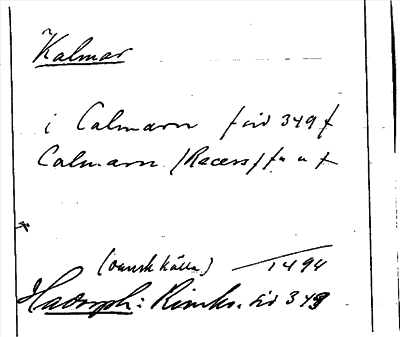 Kalmar
i Calmarn / sid 349 /
Calmarn /Recess/ " " /
(Dansk källa) 1494
Hadorph: Rimkr. sid 349